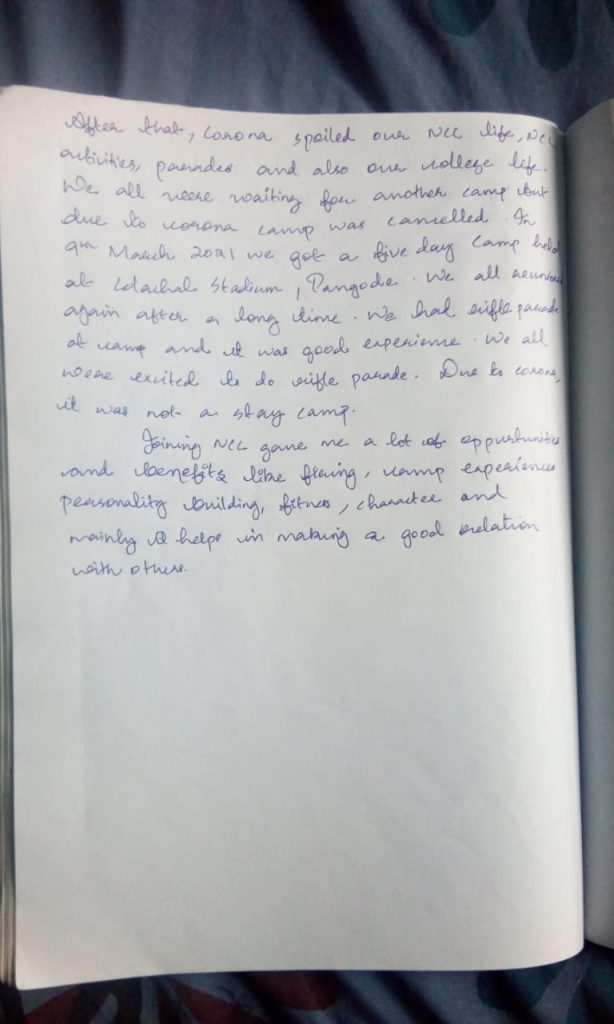 After that, corona spoiled our NCC life, NCC
activities, parades and also our college life.
We all were waiting for another camp but
due to corona camp was cancelled. In
9th March 2021 we got a five day camp held
at Kolachal Stadium, Pangode. We all reunioned
again after a long time. We had rifle parade
at camp and it was good experience. We all
were excited to do rifle parade. Due to corona,
it was not a stay camp.
Joining NCC gave me a lot of oppurtunities
and benefits like firing, camp experiences
personality building, fitness, character and
mainly it helps in making a good relation
with others.